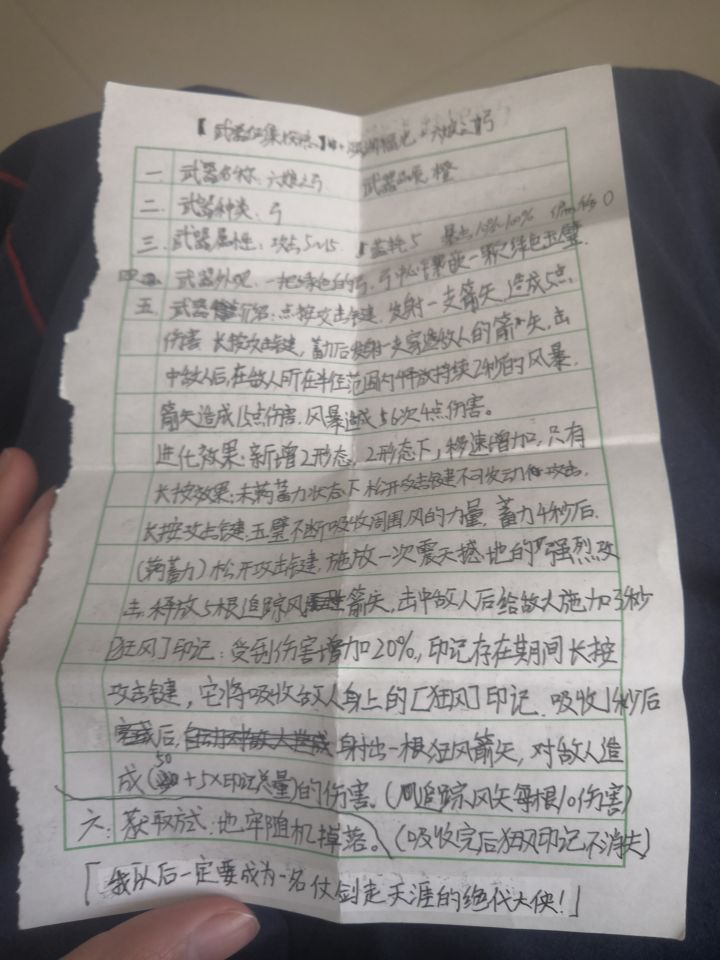 【武器征集 】 六娘之弓
一. 武器名称:六娘之弓 武器品质 橙
二. 武器种类:弓
三. 武器属性:攻击5~15 蓝耗5 暴击 100% 0
四 武器外观. 一把绿色的弓,弓中心 一颗绿色玉璧.
五. 武器 介绍:点按攻击键,发射一支箭矢,造成5点
伤害 长按攻击键,蓄力后发射一支穿透敌人的箭矢,击
中敌人后,在敌人所在半径范围内释放持续2秒的风暴.
箭矢造成15点伤害,风暴造成 5 6次4点伤害。
进化效果:新增2形态,2形态下,移速增加,只有
长按效果:未满蓄力状态下松开攻击键不可发动 攻击.
长按攻击键.玉璧不断吸收周围风的力量,蓄力4秒后.
(满蓄力)松开攻击键.施放一次震天撼地的强烈攻
击.释放5根追踪风 箭矢,击中敌人后给敌人施加3秒
[狂风]印记:受到伤害增加20%,印记存在期间长按
攻击键,它将吸收敌人身上的[狂风]印记.吸收1秒后
后, 射出一根狂风箭矢,对敌人造
成(50+5×印记总量)的伤害。( 追踪风矢每根10伤害)
六.获取方式.地牢随机掉落。(吸收完后狂风印记不消失)
「我以后一定要成为一名仗剑走天涯的绝代大侠!」